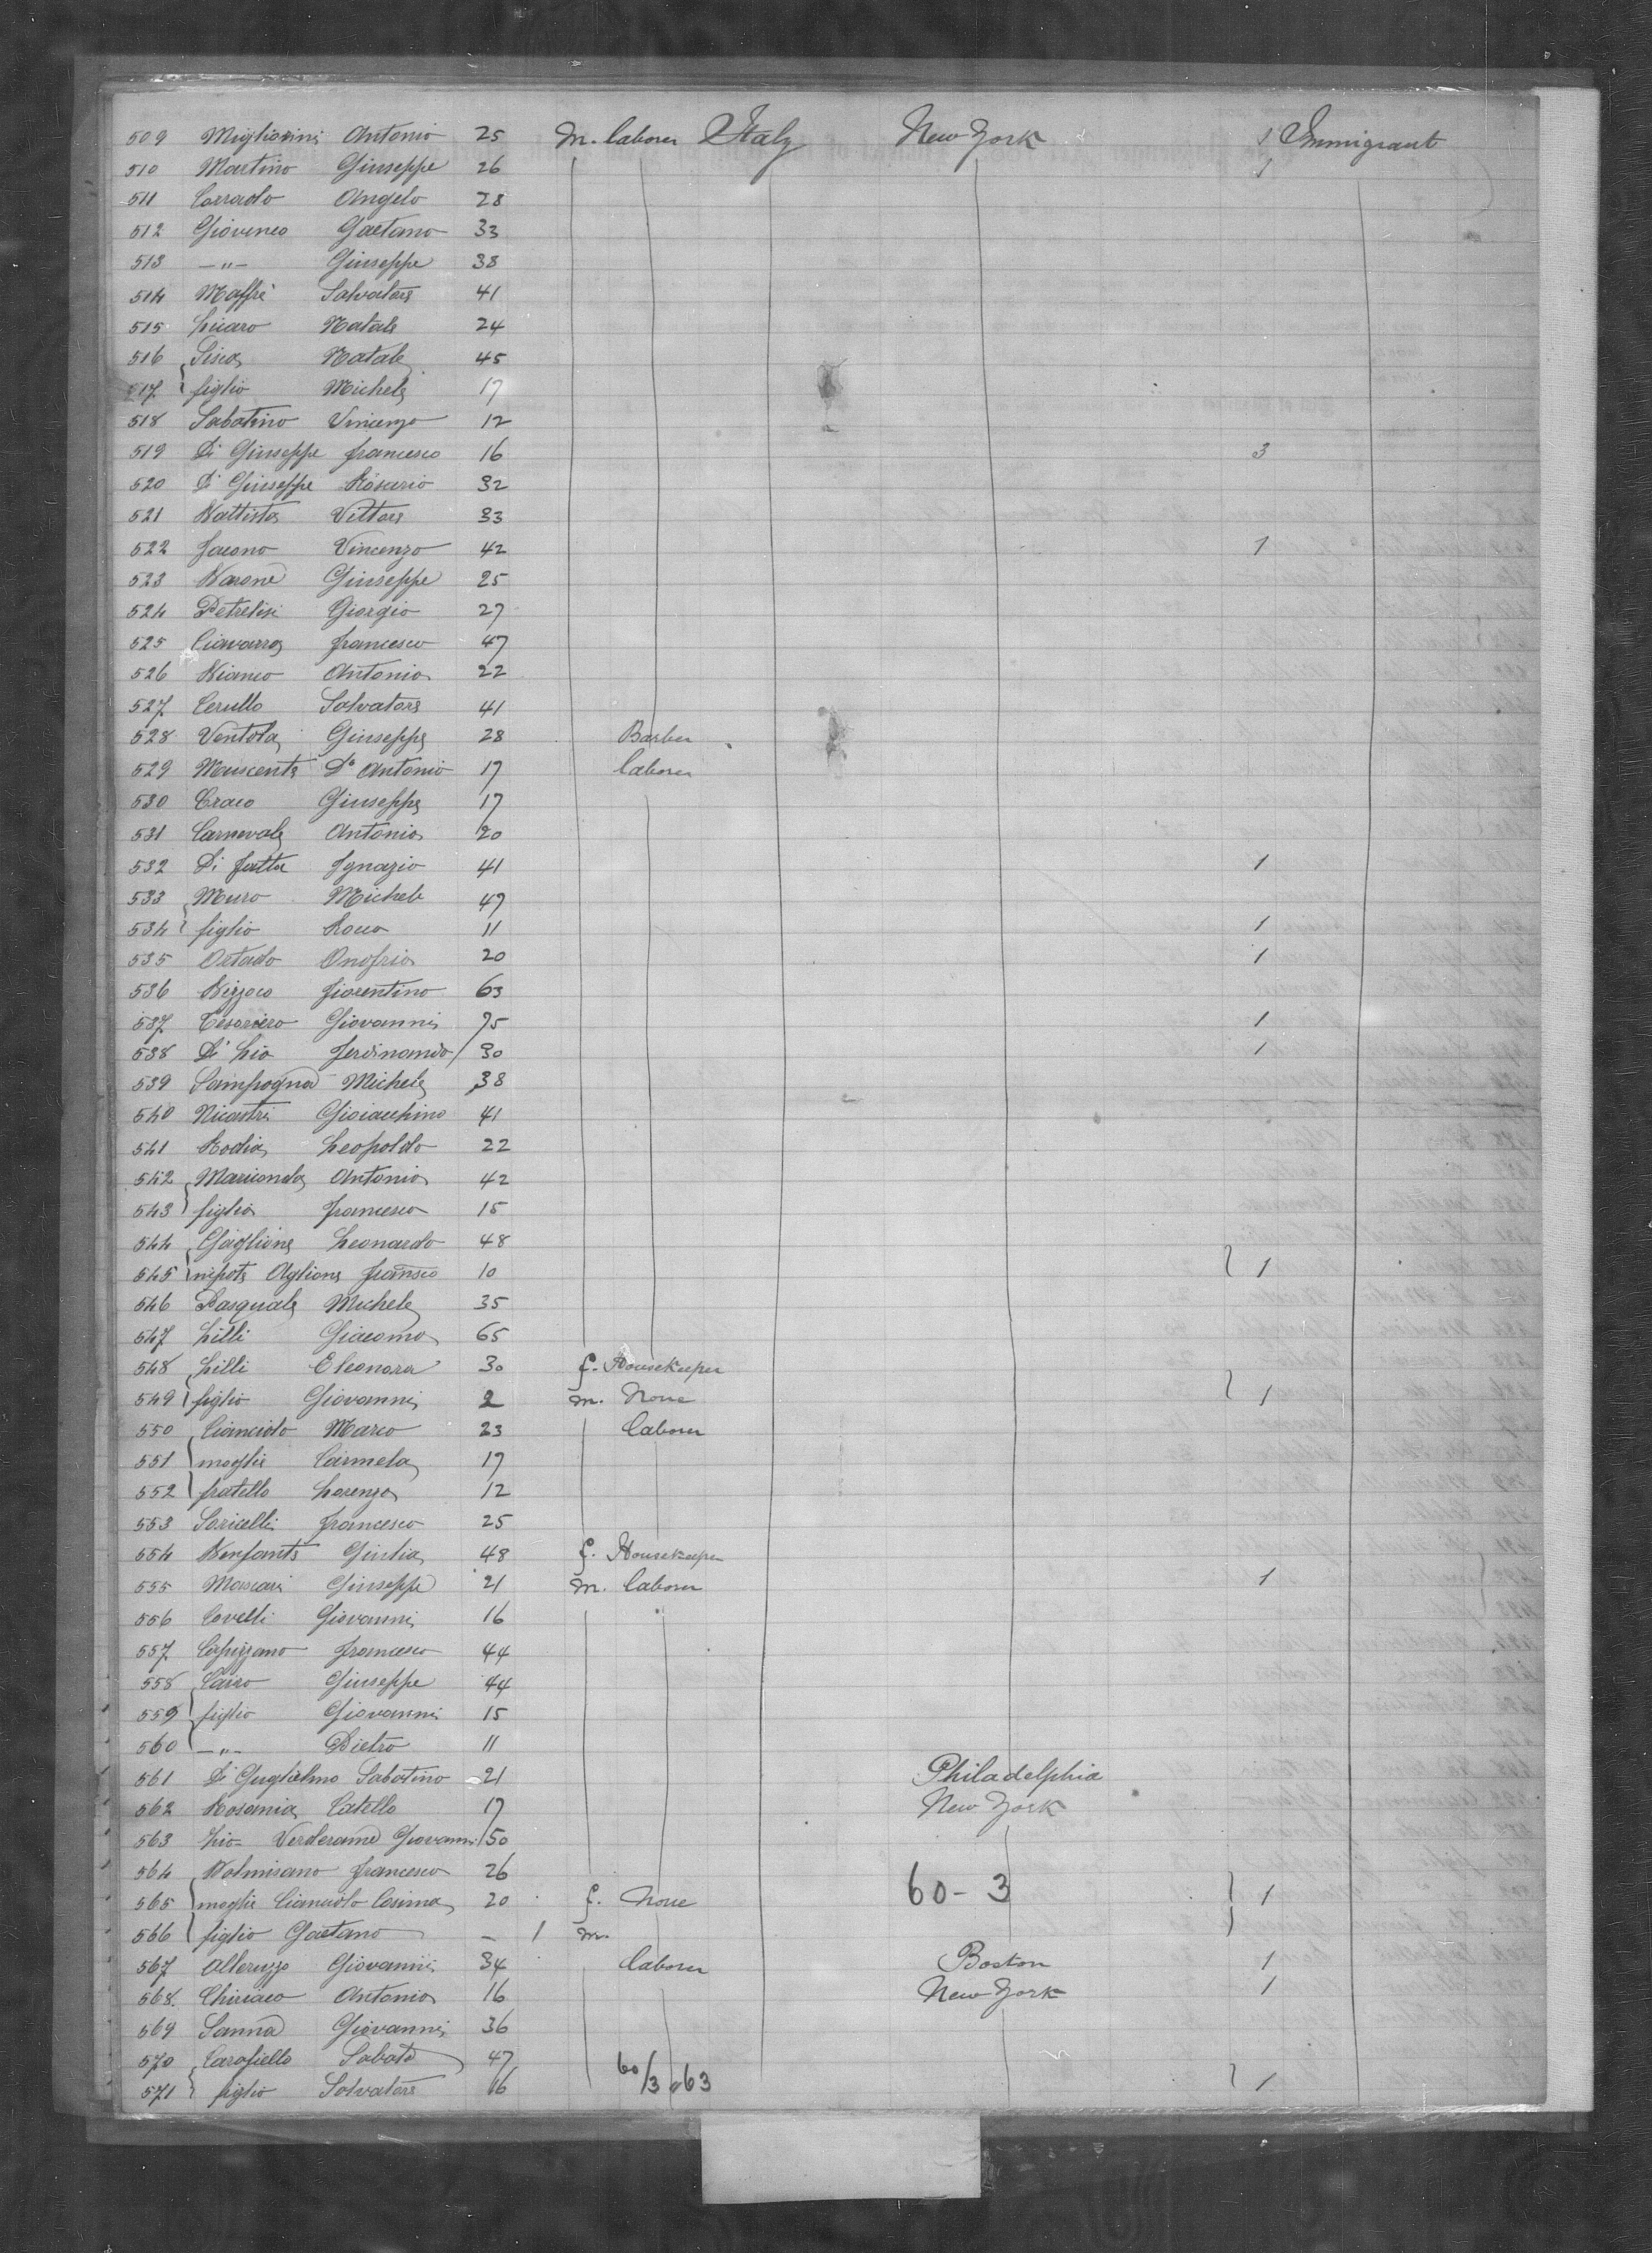 509 Migliorini Antonio 25 m. laborer Italy New York 1 Immigrant
510 Martino Giuseppe 26 1
511 Corrado Angelo 28
512 Giovinco Gaetano 33
513 —"— Giuseppe 38
514 Maffei Salvatore 41
515 Licaro Natale 24
516 Sisca Natale 45
517 figlio Michele 17
518 Sabatino Vincenzo 12
519 Di Giuseppe Francesco 16 3
520 Di Giuseppe Rosario 32
521 Battista Vittore 33
522 Jacono Vincenzo 42 1
523 Barone Giuseppe 25
524 Petrelisi Giorgio 27
525 Ciavarra Francesco 47
526 Bianco Antonio 22
527 Cerullo Salvatore 41
528 Ventola Giuseppe 28 Barber
529 Muscente D' Antonio 17 laborer
530 Craco Giuseppe 17
531 Carnevale Antonio 20
532 Di Fatta Ignazio 41 1
533 Muro Michele 47
534 figlio Rocco 11 1
535 Ortado Onofrio 20 1
536 Bizzoco Fiorentino 63
537 Tesoriero Giovanni 75 1
538 Di Lio Ferdinando / 30 1
539 Sampogna Michele 38
540 Nicastri Gioiacchino 41
541 Rodia Leopoldo 22
542 Marionda Antonio 42
543 figlio Francesco 15
544 Gaglione Leonardo 48
545 nipote Aglione Fransco 10 1
546 Pasquale Michele 35
547 Lilli Giacomo 65
548 Lilli Eleonora 30 f. Housekeeper
549 figlio Giovanni 2 m. None 1
550 Cianciolo Marco 23 laborer
551 moglie Carmela 17
552 fratello Lorenzo 12
553 Soricelli Francesco 25
554 Benfante Giulia 48 f. Housekeeper
555 Mascari Giuseppe 21 m. laborer 1
556 Covelli Giovanni 16
557 Capizzano Francesco 44
558 Cairo Giuseppe 44
559 figlio Giovanni 15
560 —"— Pietro 11
561 Di Guglielmo Sabatino 21 Philadelphia
562 Rosania Catello 17 New York
563 Lio Verderame Giovanni / 50
564 Balmisano Francesco 26
565 moglie Cianciolo Cosima 20 f. None 60-3 1
566 figlio Gaetano — 1 m.
567 Alleruzzo Giovanni 34 laborer Boston 1
568. Chiriaco Antonio 16 New York 1
569 Sanna Giovanni 36
570 Carofiello Sabato 47
571 figlio Salvatore 16 60/3 "63 1